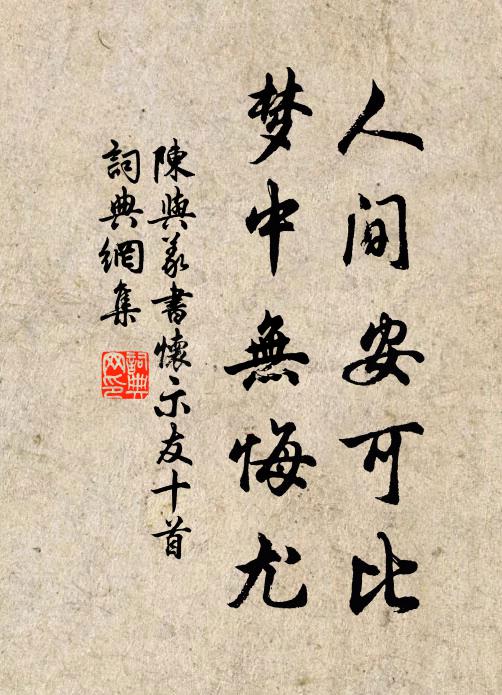 人间安可比
梦中無悔尤
陳與義書懷示友十首
詞典網集
詞典
网印